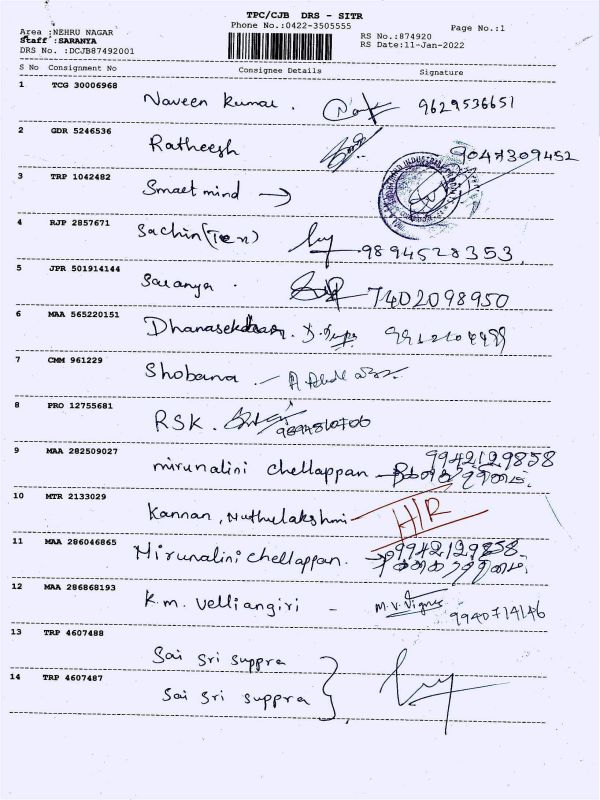 TPC/CJB DRS - SITR
Phone No.:0422-3505555
Page No.:1
Area :NEHRU NAGAR
Staff :SARANYA
DRS No. :DCJB87492001
RS No.:874920
RS Date:11-Jan-2022
S No Consignment No Consignee Details Signature
1 TCG 30006968
Naveen Kumar. 9629536651
2 GDR 5246536
Ratheesh 9047309452
3 TRP 1042482
Smaet mind
4 RJP 2857671
Sachin (Tex) 9894528353.
5 JPR 501914144
Saranya. 7402098950
6 MAA 565220151
Dhanasekaran.
7 CMM 961229
Shobana
8 PRO 12755681
RSK.
9 MAA 282509027
9942129858
mirunalini chellappan
10 MTR 2133029
Kannan, Muthulakshmi
11 MAA 286046865
9942129858
Mirunalini chellappan.
12 MAA 286868193
K.m. velliangiri - M.V. Vignes 9940714146
13 TRP 4607488
Sai Sri Suppra
14 TRP 4607487
Sai Sri Suppra